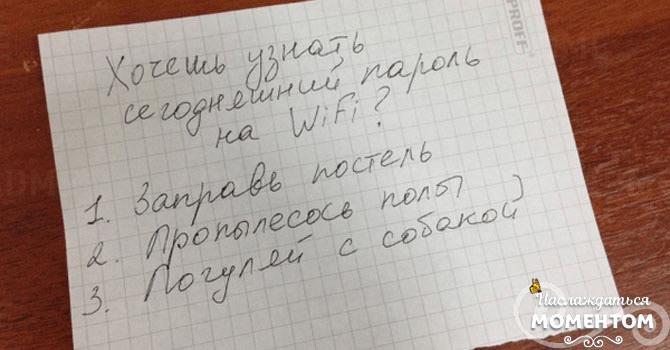 Хочешь узнать
сегодняшний пароль
на WiFi?
1. Заправь постель
2. Пропылесось полы
3. Погуляй с собакой )
PROFF
Наслаждаться
МОМЕНТОМ